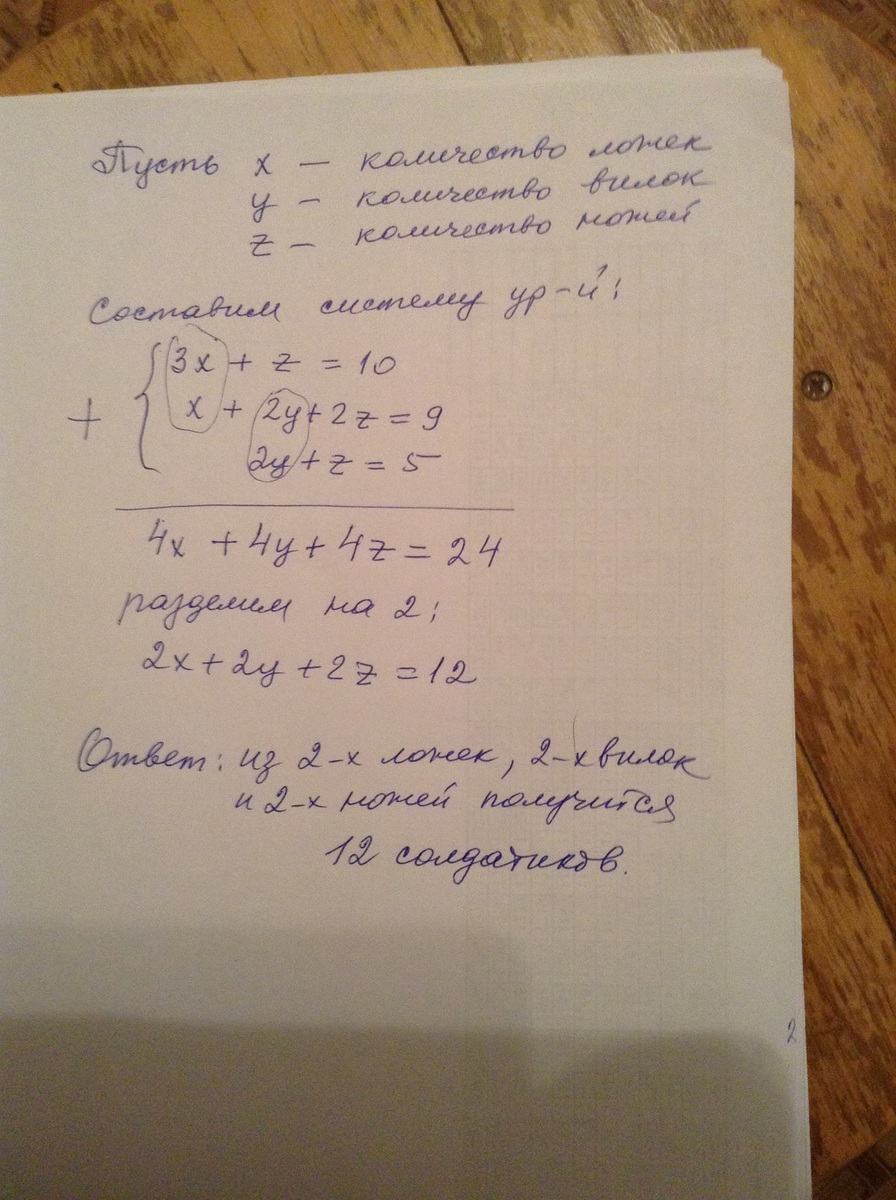 Пусть x – количество ложек
y – количество вилок
z – количество ножей
Составим систему ур-й:
3x + z = 10
+ x + 2y + 2z = 9
2y + z = 5
4x + 4y + 4z = 24
разделим на 2:
2x + 2y + 2z = 12
Ответ: из 2-х ложек, 2-х вилок
и 2-х ножей получится
12 солдатиков.
2